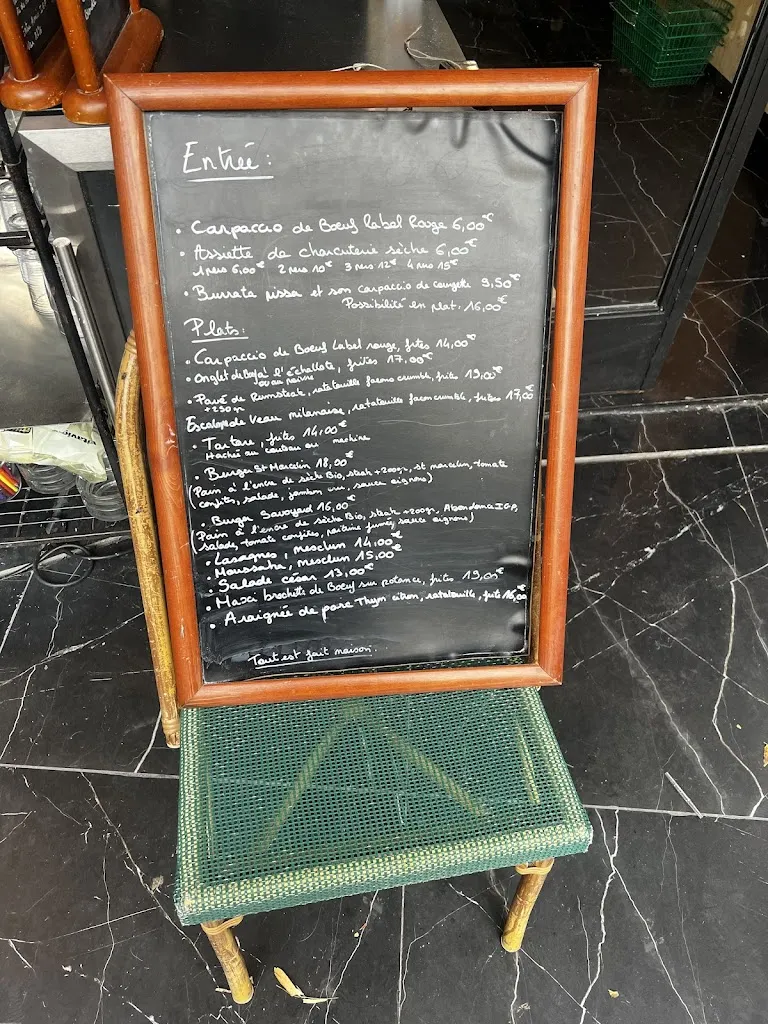 Entrée:
• Carpaccio de Bœuf Label Rouge 6,00€
• Assiette de charcuterie sèche 6,00€
1 pers 6,00€ 2 pers 10€ 3 pers 12€ 4 pers 15€
• Burrata et son carpaccio de courgette 9,50€
Possibilité en plat: 16,00€
Plats:
• Carpaccio de Bœuf Label rouge, frites 14,00€
• Onglet de Bœuf à l'échallote, frites 17,00€
ou au poivre
• Pavé de Rumsteak, ratatouille façon crumble, frites 19,00€
+250gr
Escalope de Veau milanaise, ratatouille façon crumble, frites 17,00€
• Tartare, frites 14,00€
Haché au couteau ou machine
• Burger St Marcelin 18,00€
(Pain à l'encre de sèche Bio, steak +200gr, st marcelin, tomate
confites, salade, jambon cru, sauce oignons)
• Burger Savoyard 16,00€
(Pain à l'encre de sèche Bio, steak +200gr, Abondance IGP,
salade, tomate confites, poitrine fumée, sauce oignons)
• Lasagnes, mesclun 14,00€
• Moussaka, mesclun 15,00€
• Salade césar 13,00€
• Maxi brochette de Bœuf sur potence, frites 19,00€
• Araignée de porc Thym citron, ratatouille, frites 16,00€
Tout est fait maison.